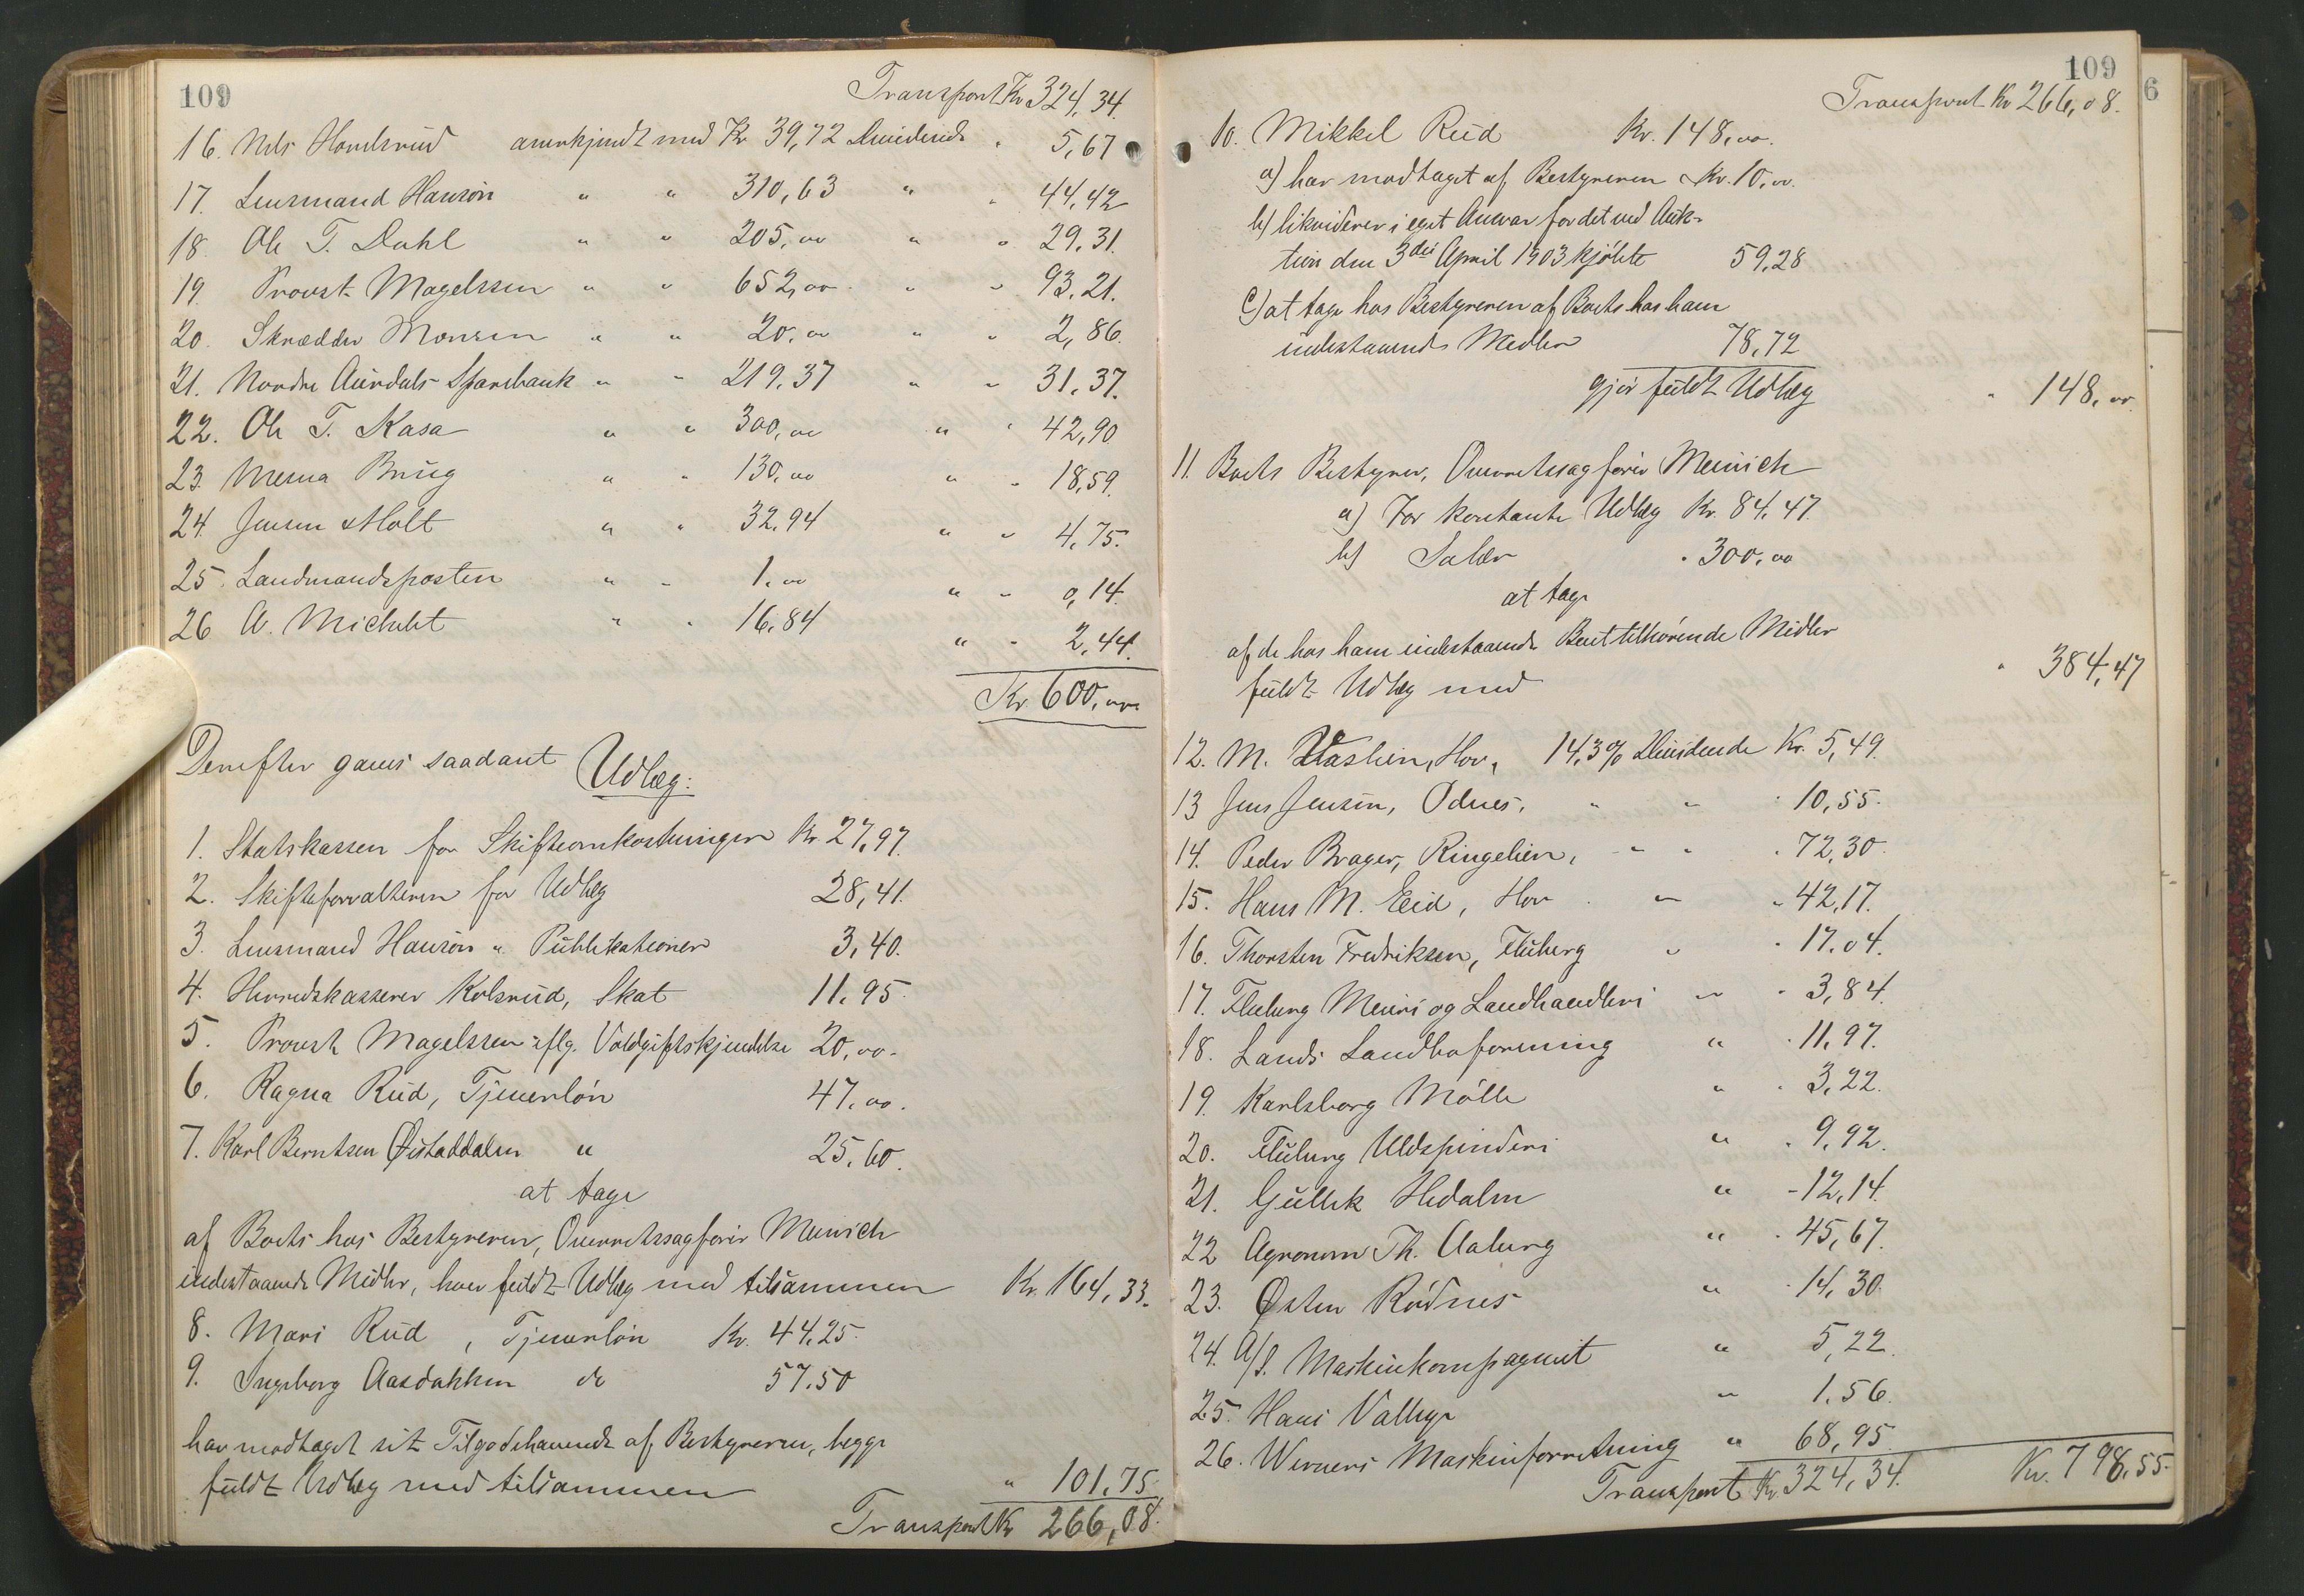 109
Transport Kr 324,34.
16. Nils Homlsrud anerkjendt med Kr 39,72 Dividende " 5,67
17. Lensmand Hansøn " " 310,63 " " 44,42
18. Ole T. Dahl " " 205,00 " " 29,31.
19. Provst Magelssen " " 652,00 " " 93,21.
20. Skrædder Monsen " " 20,00 " " 2,86.
21. Nordre Aurdals Sparebank " " 219,37 " " 31,37.
22. Ole T. Kasa " " 300,00 " " 42,90
23. Mesna Brug " " 130,00 " " 18,59.
24. Jensen & Holt " " 32,94 " " 4,75.
25. Landmandsposten " " 1,00 " " 0,14.
26 A. Michelet " " 16,84 " " 2,44.
Kr 600,00
Derefter gaves saadant Udlæg:
1. Statskassen for Skifteomkostninger Kr. 27,97.
2. Skifteforvalteren for Udlæg 28,41.
3. Lensmand Hansøn " Publikationer 3,40.
4. Herredskasserer Kolsrud, Skat 11,95.
5. Provst Magelssen iflg. Voldgiftskjendelse 20,00.
6. Ragna Rud, Tjenerløn 47,00.
7. Karl Berntsen Øistaddalen " 25,60.
at tage
af Boets hos Bestyreren, Overretssagfører Meinich
indestaaende Midler, hver fuldt Udlæg med tilsammen Kr. 164,33.
8. Mari Rud, Tjenerløn Kr. 44,25.
9. Ingeborg Aasdokken do 57.50
har modtaget sit Tilgodehavende af Bestyreren, begge
fuldt Udlæg med tilsammen " 101,75.
Transport Kr 266,08.
109
6
Transport Kr 266,08.
10. Mikkel Rud Kr. 148,00.
a) har modtaget af Bestyreren Kr. 10,00.
b) likviderer i eget Ansvar for det ved Auk-
tion den 3die April 1903 kjøbte 59,28
c) at tage hos Bestyreren af Boets hos ham
indestaaende Medler 78,72
gjør fuldt Udlæg " 148,00.
11. Boets Bestyrer, Overretssagfører Meinich
a) For kontante Udlæg Kr. 84,47.
b) Salær " 300,00
at tage
af de hos ham indestaaende Boet tilhørende Midler
fuldt Udlæg med " 384,47
12. M. Haslien, Hov, 14,3% Dividende Kr. 5,49.
13 Jens Jensen, Odnes, " " " 10,55.
14. Peder Brager, Ringelien, " " " 72,30.
15. Hans M. Eid, Hov " " 42,17.
16. Thorsten Fredriksen, Fluberg " " 17.04.
17. Fluberg Meieri og Landhandleri " " 3,84.
18. Lands Landboforening " " 11,97.
19. Karlsborg Mølle " " 3,22.
20. Fluberg Uldspinderi " " 9,92.
21. Gullik Hedalen " " 12,14.
22 Agronom Th. Aaberg " " 45,67.
23. Østen Rødnes " " 14,30.
24. A/S. Maskinkompagniet " 5,22.
25. Hans Valhye " 1.56.
26. Werners Maskinforretning " 68,95
Transport Kr. 324,34. Kr. 798,55.